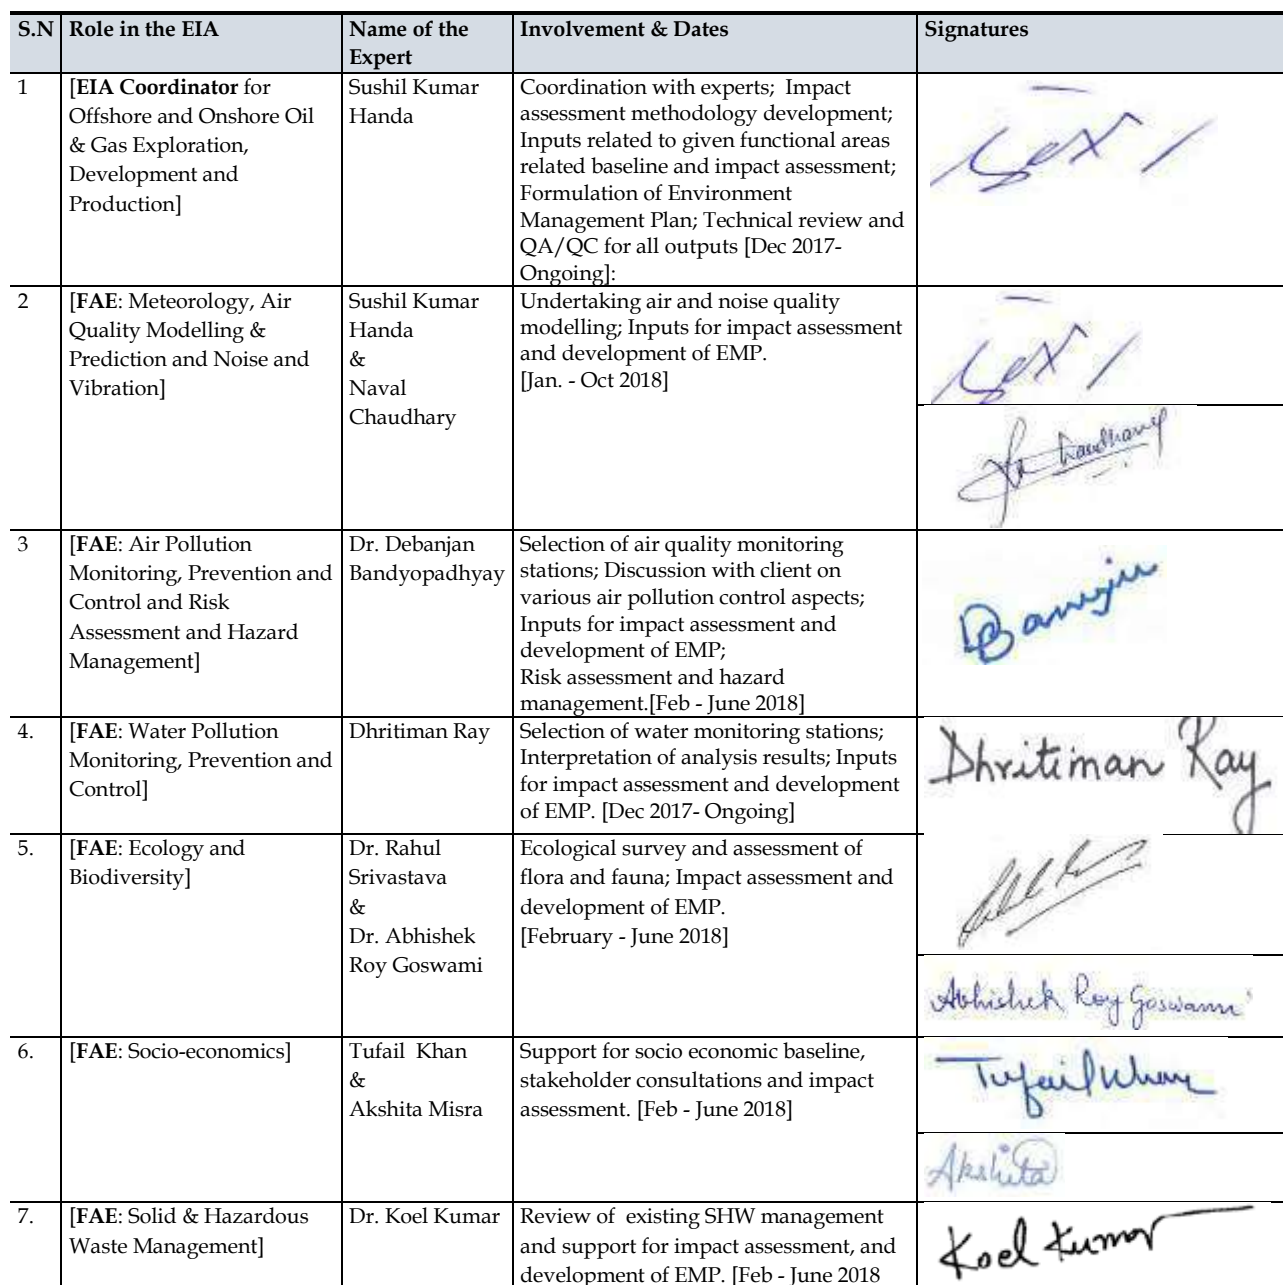 S.N Role in the EIA Name of the Expert Involvement & Dates Signatures
1
[EIA Coordinator for
Offshore and Onshore Oil
& Gas Exploration,
Development and
Production]
Sushil Kumar
Handa
Coordination with experts; Impact
assessment methodology development;
Inputs related to given functional areas
related baseline and impact assessment;
Formulation of Environment
Management Plan; Technical review and
QA/QC for all outputs [Dec 2017-
Ongoing]:
2
[FAE: Meteorology, Air
Quality Modelling &
Prediction and Noise and
Vibration]
Sushil Kumar
Handa
&
Naval
Chaudhary
Undertaking air and noise quality
modelling; Inputs for impact assessment
and development of EMP.
[Jan. - Oct 2018]
Chaudhary
3
[FAE: Air Pollution
Monitoring, Prevention and
Control and Risk
Assessment and Hazard
Management]
Dr. Debanjan
Bandyopadhyay
Selection of air quality monitoring
stations; Discussion with client on
various air pollution control aspects;
Inputs for impact assessment and
development of EMP;
Risk assessment and hazard
management.[Feb - June 2018]
4.
[FAE: Water Pollution
Monitoring, Prevention and
Control]
Dhritiman Ray
Selection of water monitoring stations;
Interpretation of analysis results; Inputs
for impact assessment and development
of EMP. [Dec 2017- Ongoing]
Dhritiman Ray
5.
[FAE: Ecology and
Biodiversity]
Dr. Rahul
Srivastava
&
Dr. Abhishek
Roy Goswami
Ecological survey and assessment of
flora and fauna; Impact assessment and
development of EMP.
[February - June 2018]
Abhishek Roy Goswami
6.
[FAE: Socio-economics]
Tufail Khan
&
Akshita Misra
Support for socio economic baseline,
stakeholder consultations and impact
assessment. [Feb - June 2018]
Tufail Khan
Akshita
7.
[FAE: Solid & Hazardous
Waste Management]
Dr. Koel Kumar
Review of existing SHW management
and support for impact assessment, and
development of EMP. [Feb - June 2018
Koel Kumar